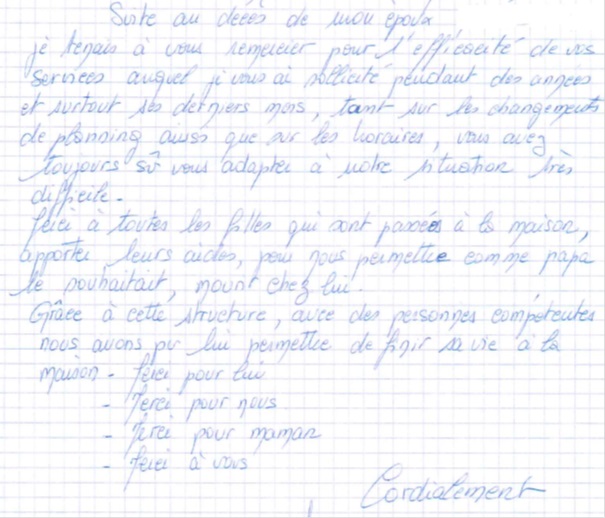 Suite au décés de mon époux
je tenais à vous remercier pour l'efficacité de vos
services auquel je vous ai sollicité pendant des années
et surtout ses derniers mois, tant sur les changements
de planning ainsi que sur les horaires, vous avez
toujours sû vous adapter à notre situation très
difficile.
Merci à toutes les filles qui sont passées à la maison,
apporter leurs aides, pour nous permettre comme papa
le souhaitait, mourir chez lui.
Grâce à cette structure, avec des personnes compétentes
nous avons pu lui permettre de finir sa vie à la
maison - Merci pour lui
- Merci pour nous
- Merci pour maman
- Merci à vous
Cordialement